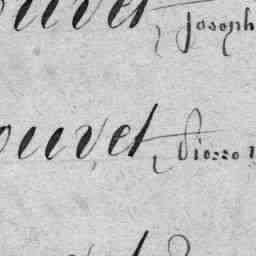 ouvet, Joseph
ouvet, Pierre